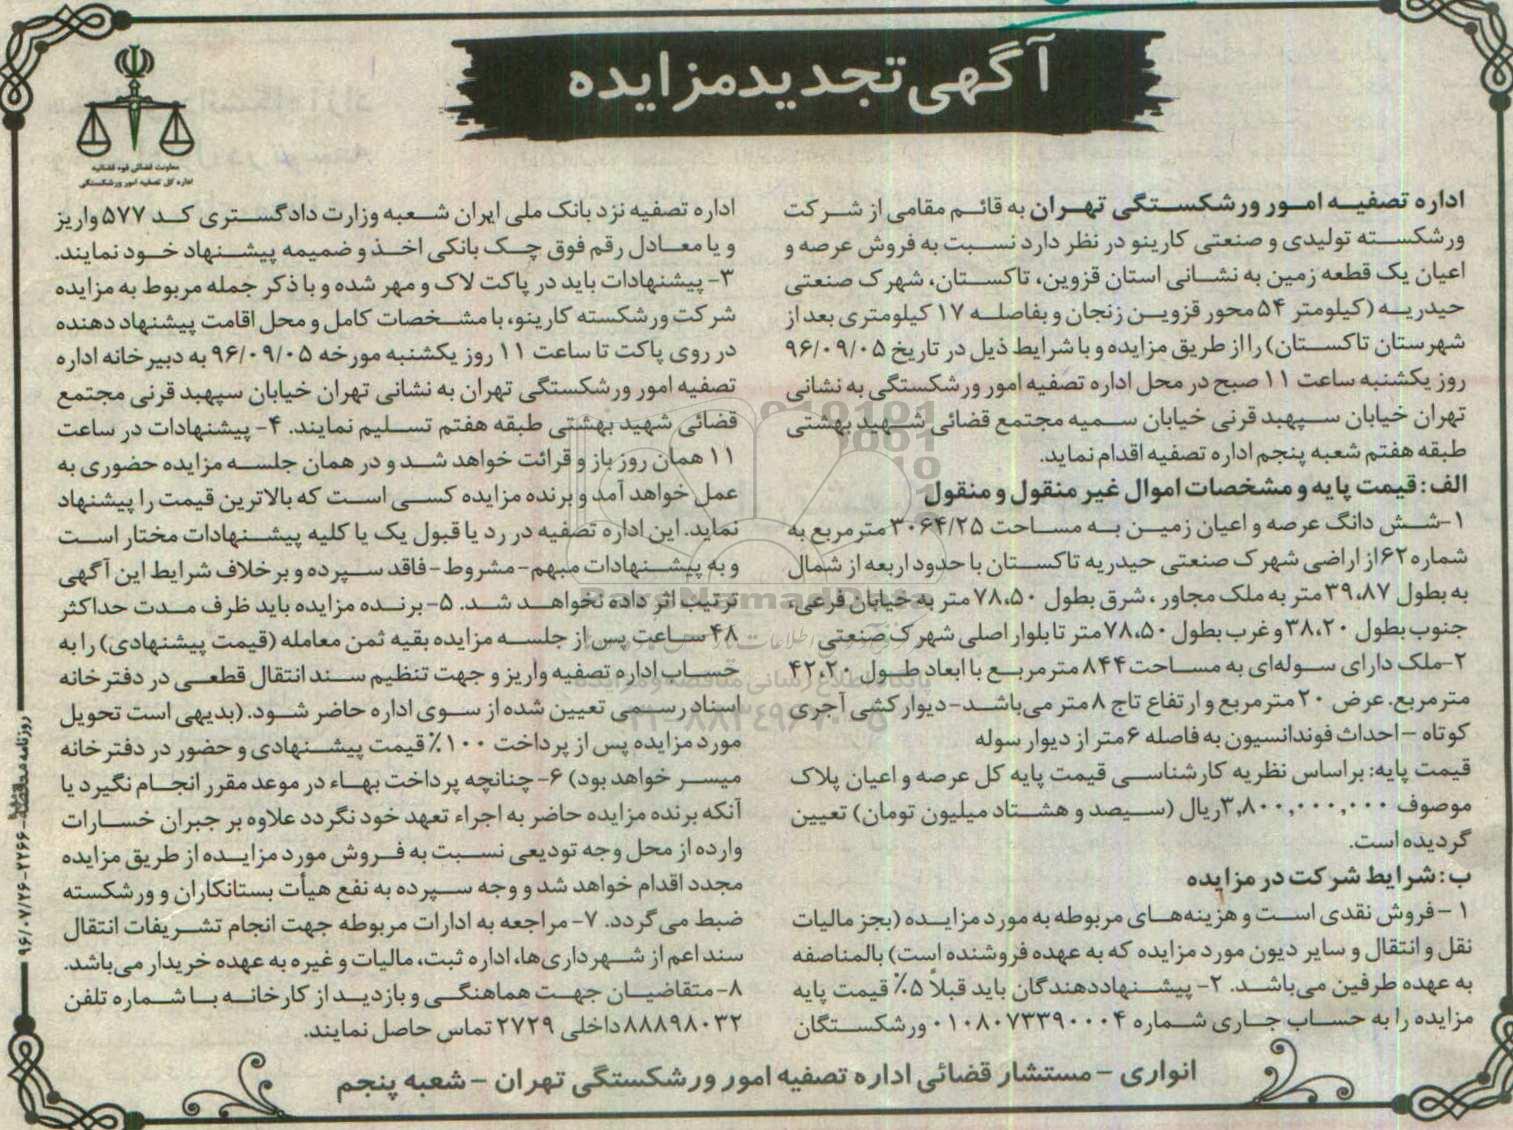 آگهی تجدید مزایده
معاونت قضائی قوه قضائیه
اداره کل تصفیه امور ورشکستگی
اداره تصفیه امور ورشکستگی تهران به قائم مقامی از شرکت
ورشکسته تولیدی و صنعتی کارینو در نظر دارد نسبت به فروش عرصه و
اعیان یک قطعه زمین به نشانی استان قزوین، تاکستان، شهرک صنعتی
حیدریه (کیلومتر ۵۴ محور قزوین زنجان و بفاصله ۱۷ کیلومتری بعد از
شهرستان تاکستان) را از طریق مزایده و با شرایط ذیل در تاریخ ۹۶/۰۹/۰۵
روز یکشنبه ساعت ۱۱ صبح در محل اداره تصفیه امور ورشکستگی به نشانی
تهران خیابان سپهبد قرنی خیابان سمیه مجتمع قضائی شهید بهشتی
طبقه هفتم شعبه پنجم اداره تصفیه اقدام نماید.
الف: قیمت پایه و مشخصات اموال غیر منقول و منقول
۱-شش دانگ عرصه و اعیان زمین به مساحت ۳۰۶۴/۲۵ مترمربع به
شماره ۶۲ از اراضی شهرک صنعتی حیدریه تاکستان با حدود اربعه از شمال
به بطول ۳۹،۸۷ متر به ملک مجاور، شرق بطول ۷۸،۵۰ متر به خیابان فرعی،
جنوب بطول ۳۸،۲۰ و غرب بطول ۷۸،۵۰ متر تا بلوار اصلی شهرک صنعتی
۲-ملک دارای سوله‌ای به مساحت ۸۴۴ مترمربع با ابعاد طول ۴۲،۲۰
مترمربع. عرض ۲۰ مترمربع و ارتفاع تاج ۸ متر می‌باشد- دیوارکشی آجری
کوتاه - احداث فوندانسیون به فاصله ۶ متر از دیوار سوله
قیمت پایه: براساس نظریه کارشناسی قیمت پایه کل عرصه و اعیان پلاک
موصوف ۳,۸۰۰,۰۰۰,۰۰۰ ریال (سیصد و هشتاد میلیون تومان) تعیین
گردیده است.
ب: شرایط شرکت در مزایده
۱ - فروش نقدی است و هزینه‌های مربوطه به مورد مزایده (بجز مالیات
نقل و انتقال و سایر دیون مورد مزایده که به عهده فروشنده است) بالمناصفه
به عهده طرفین می‌باشد. ۲- پیشنهاددهندگان باید قبلاً ۵٪ قیمت پایه
مزایده را به حساب جاری شماره ۰۱۰۸۰۷۳۳۹۰۰۰۴ ورشکستگان
اداره تصفیه نزد بانک ملی ایران شعبه وزارت دادگستری کد ۵۷۷ واریز
و یا معادل رقم فوق چک بانکی اخذ و ضمیمه پیشنهاد خود نمایند.
۳- پیشنهادات باید در پاکت لاک و مهر شده و با ذکر جمله مربوط به مزایده
شرکت ورشکسته کارینو، با مشخصات کامل و محل اقامت پیشنهاد دهنده
در روی پاکت تا ساعت ۱۱ روز یکشنبه مورخه ۹۶/۰۹/۰۵ به دبیرخانه اداره
تصفیه امور ورشکستگی تهران به نشانی تهران خیابان سپهبد قرنی مجتمع
قضائی شهید بهشتی طبقه هفتم تسلیم نمایند. ۴- پیشنهادات در ساعت
۱۱ همان روز باز و قرائت خواهد شد و در همان جلسه مزایده حضوری به
عمل خواهد آمد و برنده مزایده کسی است که بالاترین قیمت را پیشنهاد
نماید. این اداره تصفیه در رد یا قبول یک یا کلیه پیشنهادات مختار است
و به پیشنهادات مبهم- مشروط- فاقد سپرده و برخلاف شرایط این آگهی
ترتیب اثر داده نخواهد شد. ۵- برنده مزایده باید ظرف مدت حداکثر
۴۸ ساعت پس از جلسه مزایده بقیه ثمن معامله (قیمت پیشنهادی) را به
حساب اداره تصفیه واریز و جهت تنظیم سند انتقال قطعی در دفترخانه
اسناد رسمی تعیین شده از سوی اداره حاضر شود. (بدیهی است تحویل
مورد مزایده پس از پرداخت ۱۰۰٪ قیمت پیشنهادی و حضور در دفترخانه
میسر خواهد بود) ۶- چنانچه پرداخت بهاء در موعد مقرر انجام نگیرد یا
آنکه برنده مزایده حاضر به اجراء تعهد خود نگردد علاوه بر جبران خسارات
وارده از محل وجه تودیعی نسبت به فروش مورد مزایده از طریق مزایده
مجدد اقدام خواهد شد و وجه سپرده به نفع هیأت بستانکاران و ورشکسته
ضبط می‌گردد. ۷- مراجعه به ادارات مربوطه جهت انجام تشریفات انتقال
سند اعم از شهرداری‌ها، اداره ثبت، مالیات و غیره به عهده خریدار می‌باشد.
۸- متقاضیان جهت هماهنگی و بازدید از کارخانه با شماره تلفن
۸۸۸۹۸۰۳۲ داخلی ۲۷۲۹ تماس حاصل نمایند.
انواری - مستشار قضائی اداره تصفیه امور ورشکستگی تهران - شعبه پنجم
روزنامه مناقصه - ۲۲۶۶ - ۹۶/۰۷/۲۶